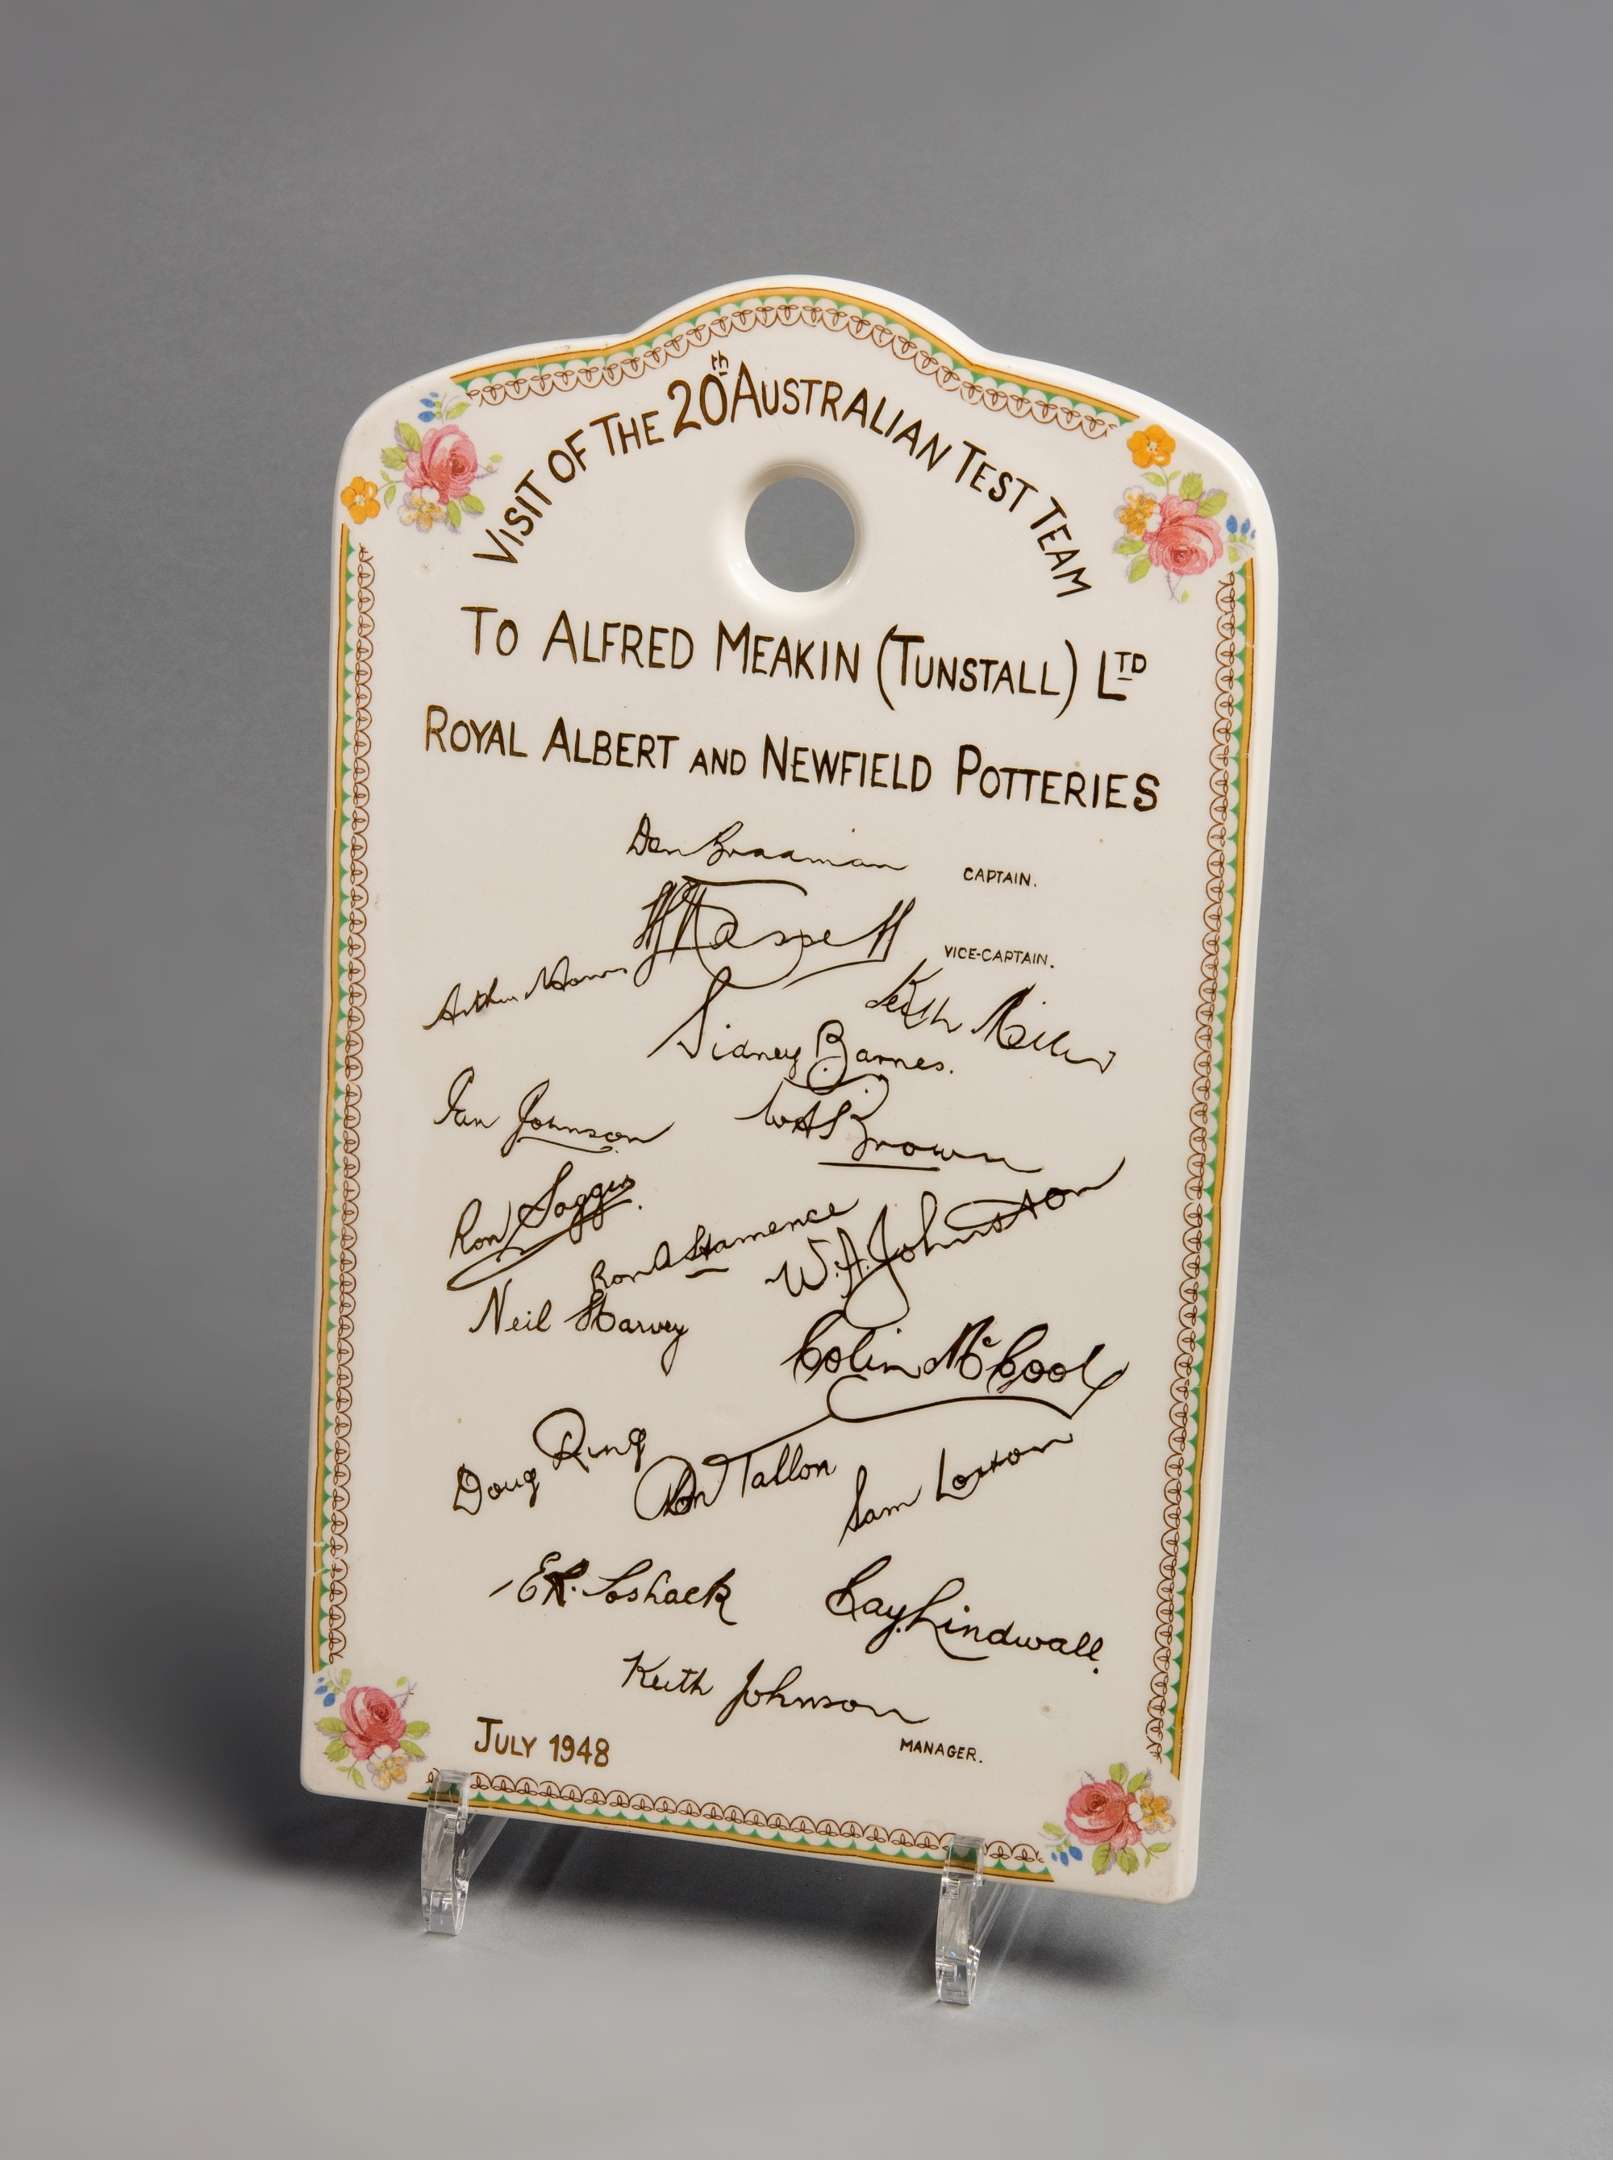 VISIT OF THE 20th AUSTRALIAN TEST TEAM
TO ALFRED MEAKIN (TUNSTALL) LTD
ROYAL ALBERT AND NEWFIELD POTTERIES
Don Bradman CAPTAIN.
A L Hassett VICE-CAPTAIN.
Arthur Morris
Keith Miller
Sidney Barnes.
Ian Johnson
W A Brown
Ron Saggers.
Ron A Hamence
W.A. Johnston
Neil Harvey
Colin McCool
Doug Ring
Don Tallon
Sam Loxton
E R. Toshack
Ray. Lindwall.
Keith Johnson
MANAGER.
JULY 1948